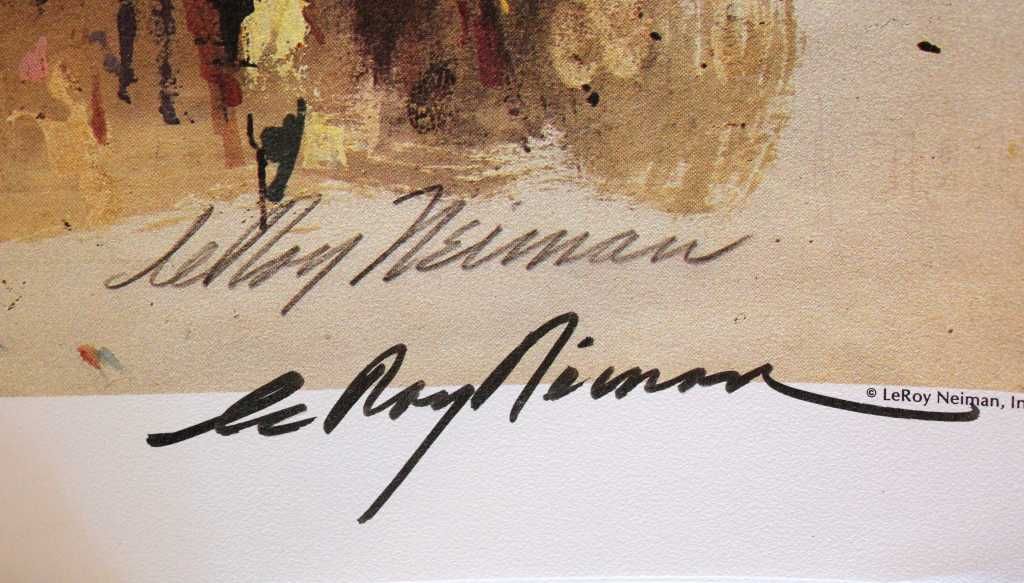 LeRoy Neiman
LeRoy Neiman
© LeRoy Neiman, In